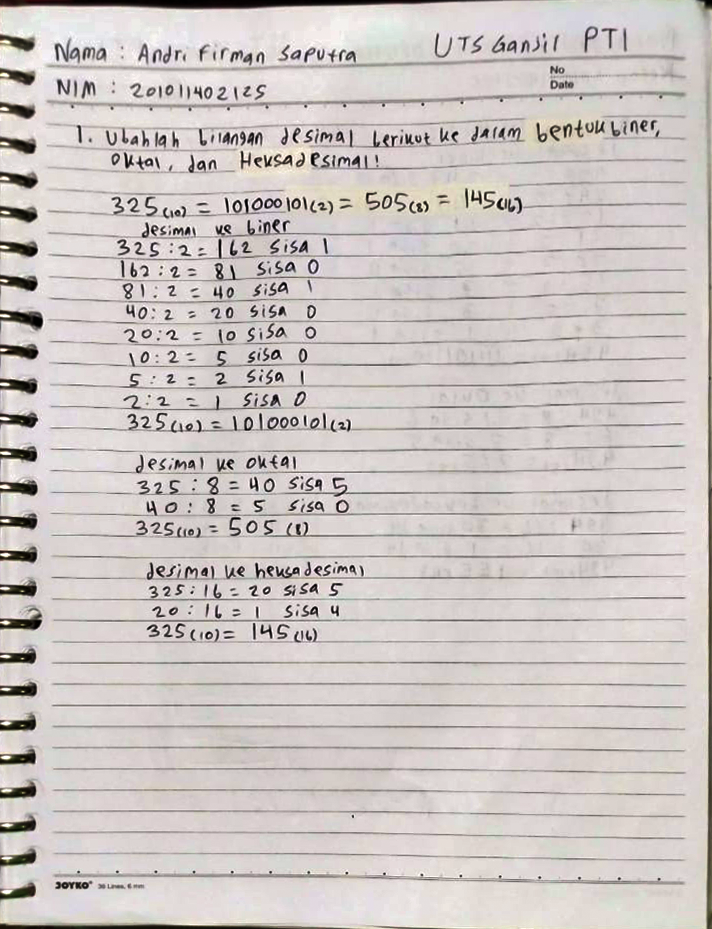 Nama : Andri Firman Saputra UTS Ganjil PTI
NIM : 201011402125
No
Date
1. Ubahlah bilangan desimal berikut ke dalam bentuk biner,
Oktal, dan Heksadesimal!
325(10) = 101000101(2) = 505(8) = 145(16)
desimal ke biner
325 : 2 = 162 sisa 1
162 : 2 = 81 sisa 0
81 : 2 = 40 sisa 1
40 : 2 = 20 sisa 0
20 : 2 = 10 sisa 0
10 : 2 = 5 sisa 0
5 : 2 = 2 sisa 1
2 : 2 = 1 sisa 0
325(10) = 101000101(2)
desimal ke oktal
325 : 8 = 40 sisa 5
40 : 8 = 5 sisa 0
325(10) = 505 (8)
desimal ke heksadesimal
325 : 16 = 20 sisa 5
20 : 16 = 1 sisa 4
325(10) = 145(16)
JOYKO 36 Lines, 6 mm